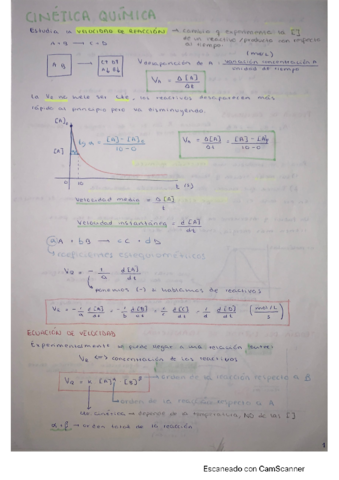 CINÉTICA QUÍMICA
Estudia la VELOCIDAD DE REACCIÓN → 
de un reactivo/producto con respecto
al tiempo
A + B → C + D
(mol/L)
V desaparición de A = variación concentración A
unidad de tiempo
VR = Δ[A]
Δt
La VR no suele ser cte, los reactivos desaparecen más
rápido al principio pero va disminuyendo.
[A]0
[A]
t (s)
Velocidad media = Δ[A]
t
Velocidad instantánea = d[A]
dt
aA + bB → cC + dD
coeficientes estequiométricos
VR = - 1/a d[A]/dt
ponemos (-) si hablamos de reactivos
VR = - 1/a d[A]/dt = - 1/b d[B]/dt = 1/c d[C]/dt = 1/d d[D]/dt (mol/L / s)
ECUACIÓN DE VELOCIDAD
Experimentalmente se puede llegar a una relación entre:
VR concentración de los reactivos
orden de la reacción respecto a B
VR = k [A]α [B]β
orden de la reacción respecto a A
cte cinética → depende de la temperatura, NO de las []
α + β → orden total de la reacción
Escaneado con CamScanner